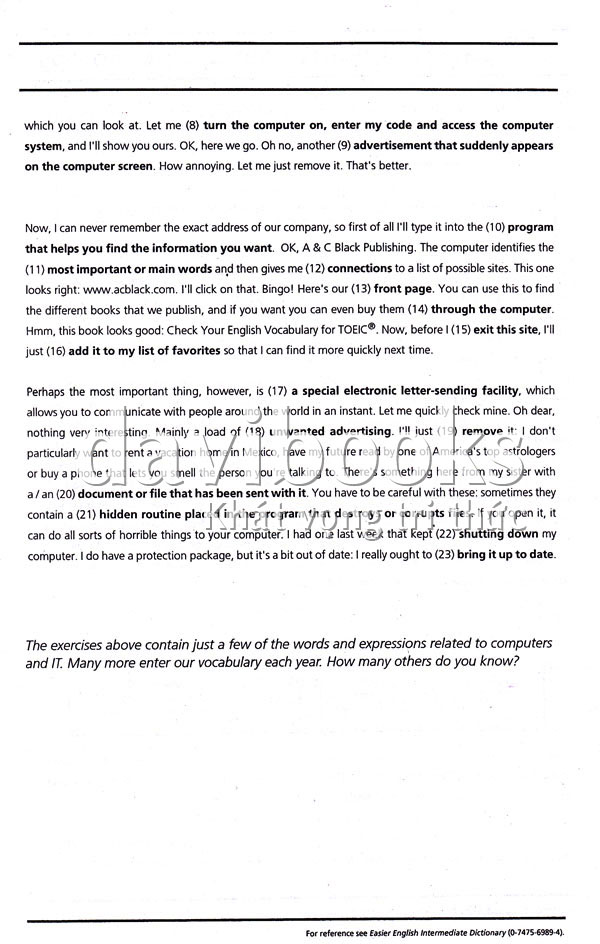 which you can look at. Let me (8) turn the computer on, enter my code and access the computer
system, and I'll show you ours. OK, here we go. Oh no, another (9) advertisement that suddenly appears
on the computer screen. How annoying. Let me just remove it. That's better.
Now, I can never remember the exact address of our company, so first of all I'll type it into the (10) program
that helps you find the information you want. OK, A & C Black Publishing. The computer identifies the
(11) most important or main words and then gives me (12) connections to a list of possible sites. This one
looks right: www.acblack.com. I'll click on that. Bingo! Here's our (13) front page. You can use this to find
the different books that we publish, and if you want you can even buy them (14) through the computer.
Hmm, this book looks good: Check Your English Vocabulary for TOEIC®. Now, before I (15) exit this site, I'll
just (16) add it to my list of favorites so that I can find it more quickly next time.
Perhaps the most important thing, however, is (17) a special electronic letter-sending facility, which
allows you to communicate with people around the world in an instant. Let me quickly check mine. Oh dear,
nothing very interesting. Mainly a load of (18) unwanted advertising. I'll just (19) remove it: I don't
particularly want to rent a vacation home in Mexico, have my future read by one of America's top astrologers
or buy a phone that lets you smell the person you're talking to. There's something here from my sister with
a / an (20) document or file that has been sent with it. You have to be careful with these: sometimes they
contain a (21) hidden routine placed in the program that destroys or corrupts files. If you open it, it
can do all sorts of horrible things to your computer. I had one last week that kept (22) shutting down my
computer. I do have a protection package, but it's a bit out of date: I really ought to (23) bring it up to date.
davibooks
Khát vọng tri thức
The exercises above contain just a few of the words and expressions related to computers
and IT. Many more enter our vocabulary each year. How many others do you know?
For reference see Easier English Intermediate Dictionary (0-7475-6989-4).